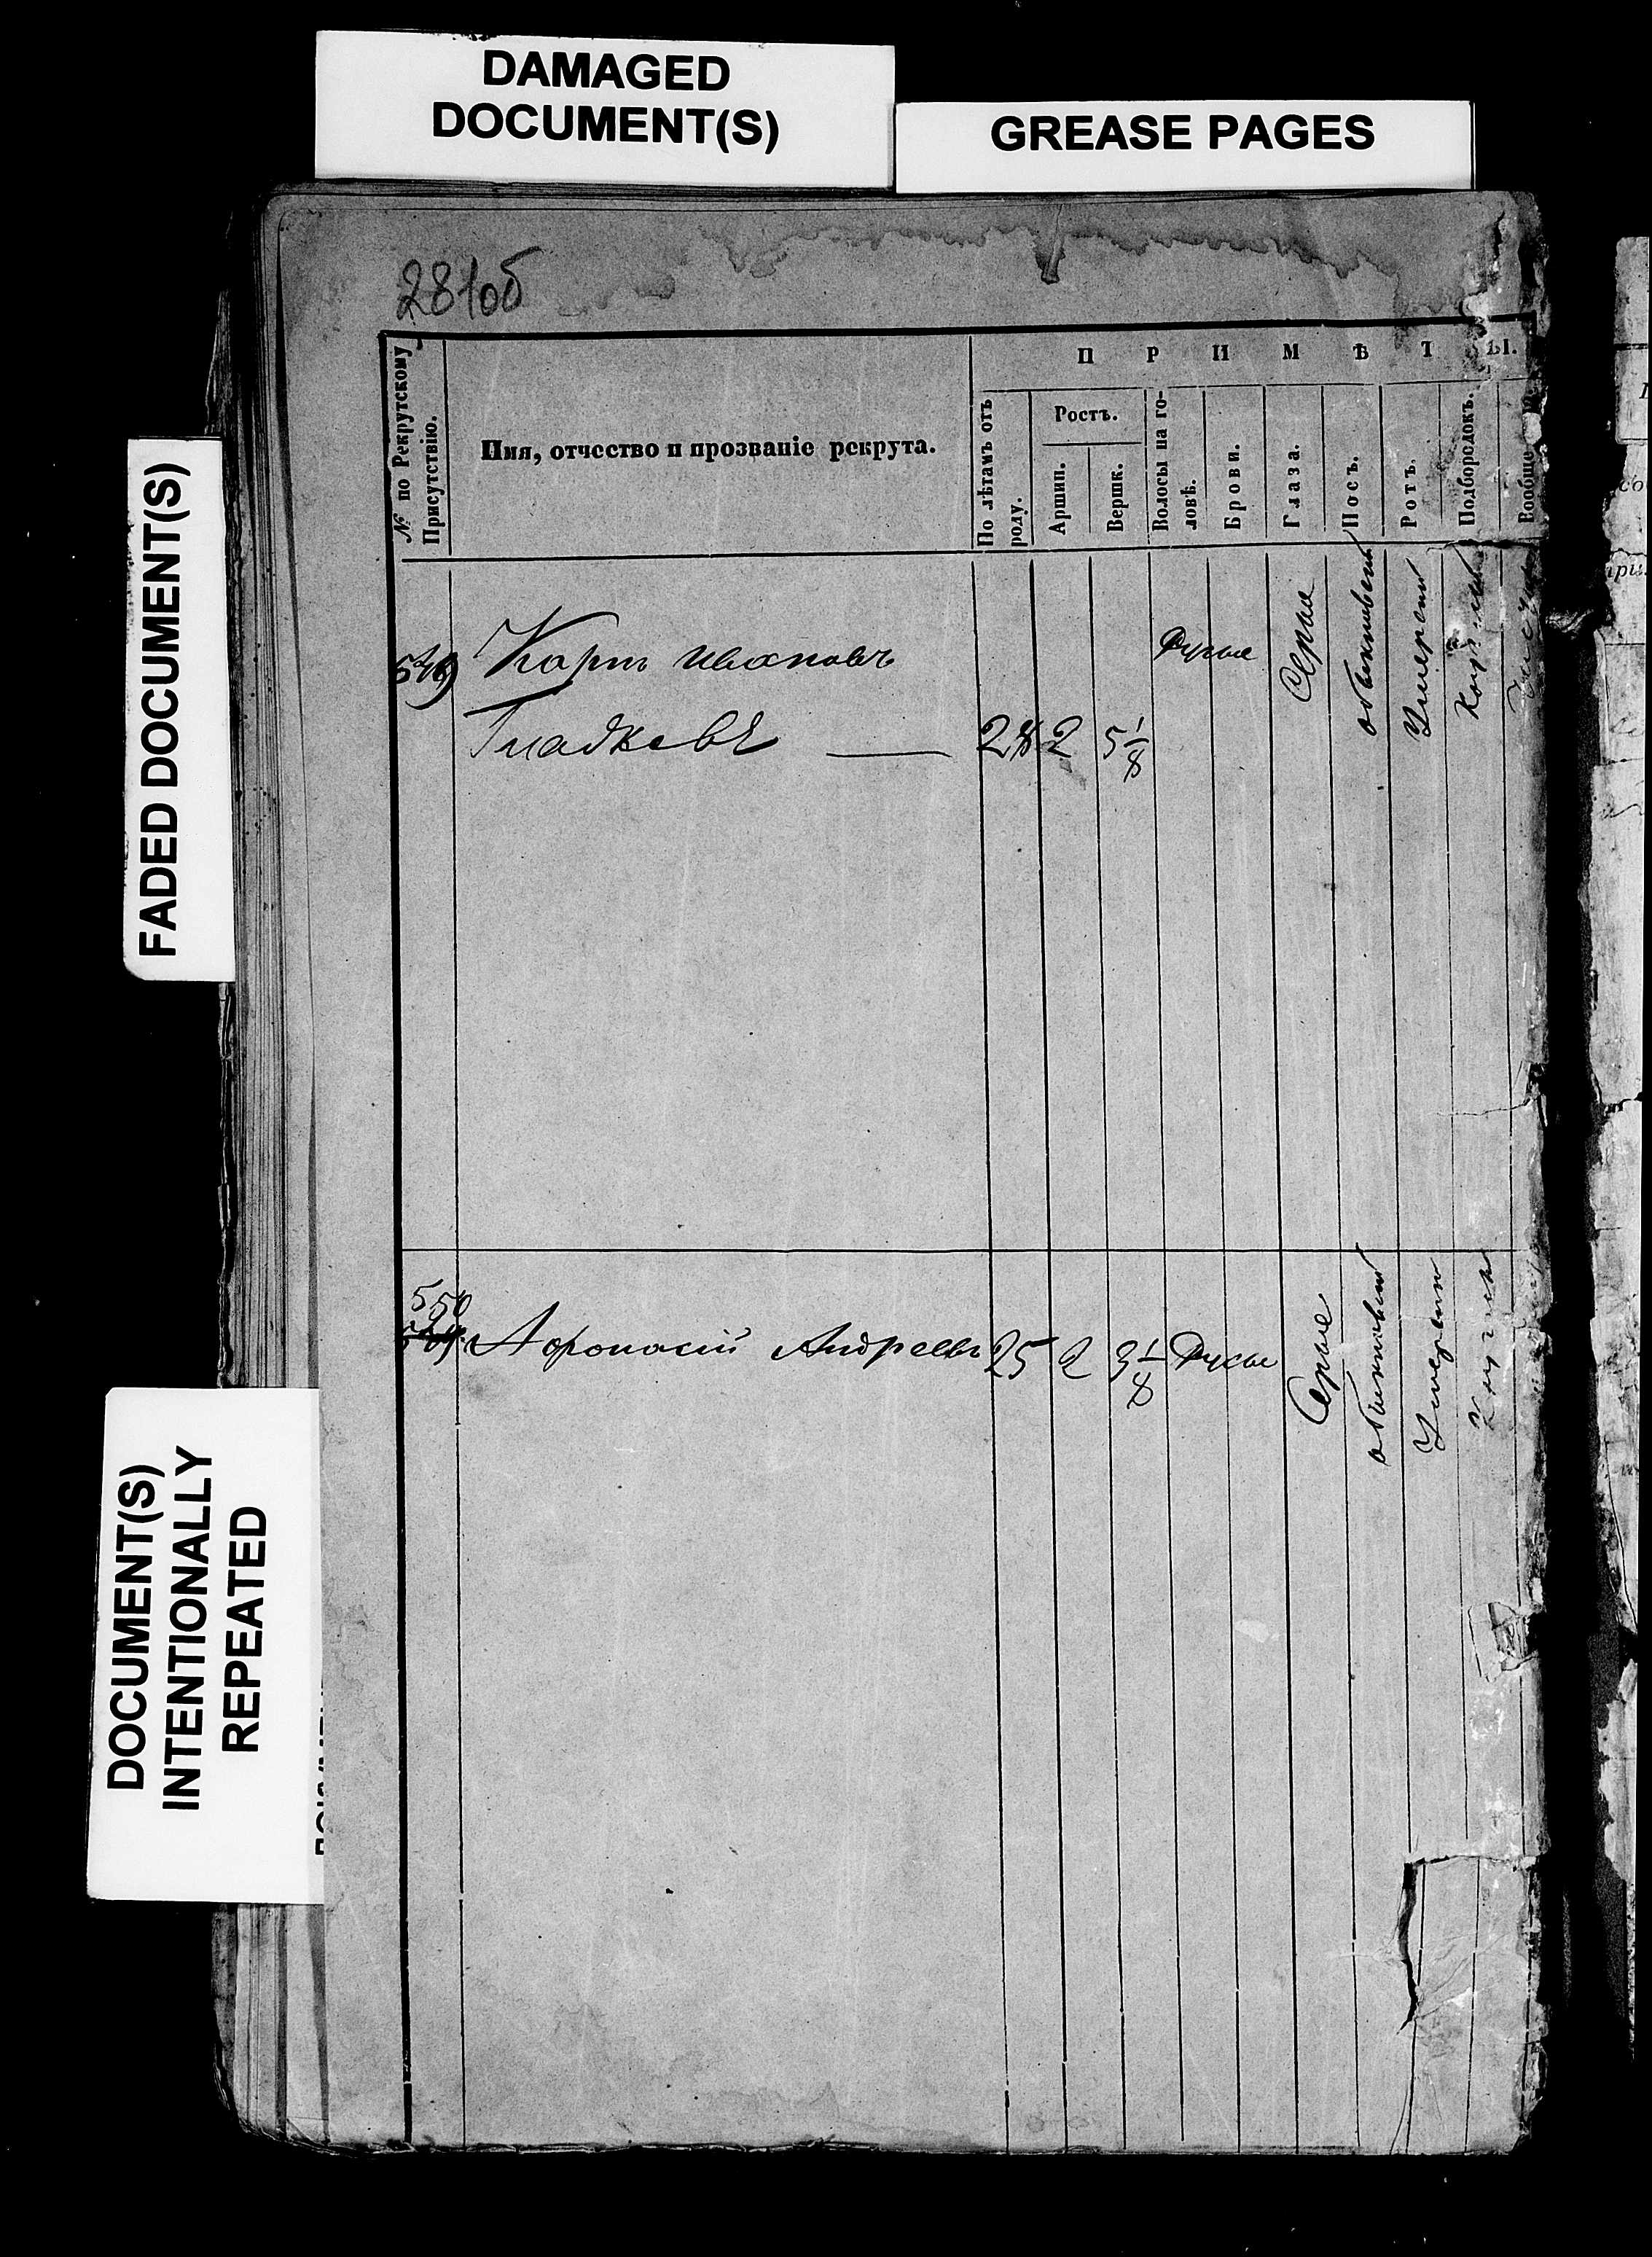 DAMAGED
DOCUMENT(S)
GREASE PAGES
FADED DOCUMENT(S)
DOCUMENT(S)
INTENTIONALLY
REPEATED
281об
№ по Рекрутскому
Присутствію.
Имя, отчество и прозваніе рекрута.
П Р И М Ѣ Т Ы.
По лѣтамъ отъ
роду.
Ростъ.
Аршин.
Вершк.
Волосы на го-
ловѣ.
Брови.
Глаза.
Носъ.
Ротъ.
Подбородокъ.
Вообще
549
Карпъ Ивановъ
Гладковъ
2
5 1/8
Русые
Серые
обыкновен
Умерен
550
Афонасій Андреевъ
25
2
3 1/8
Русы
Серые
обыкновен
Умерен